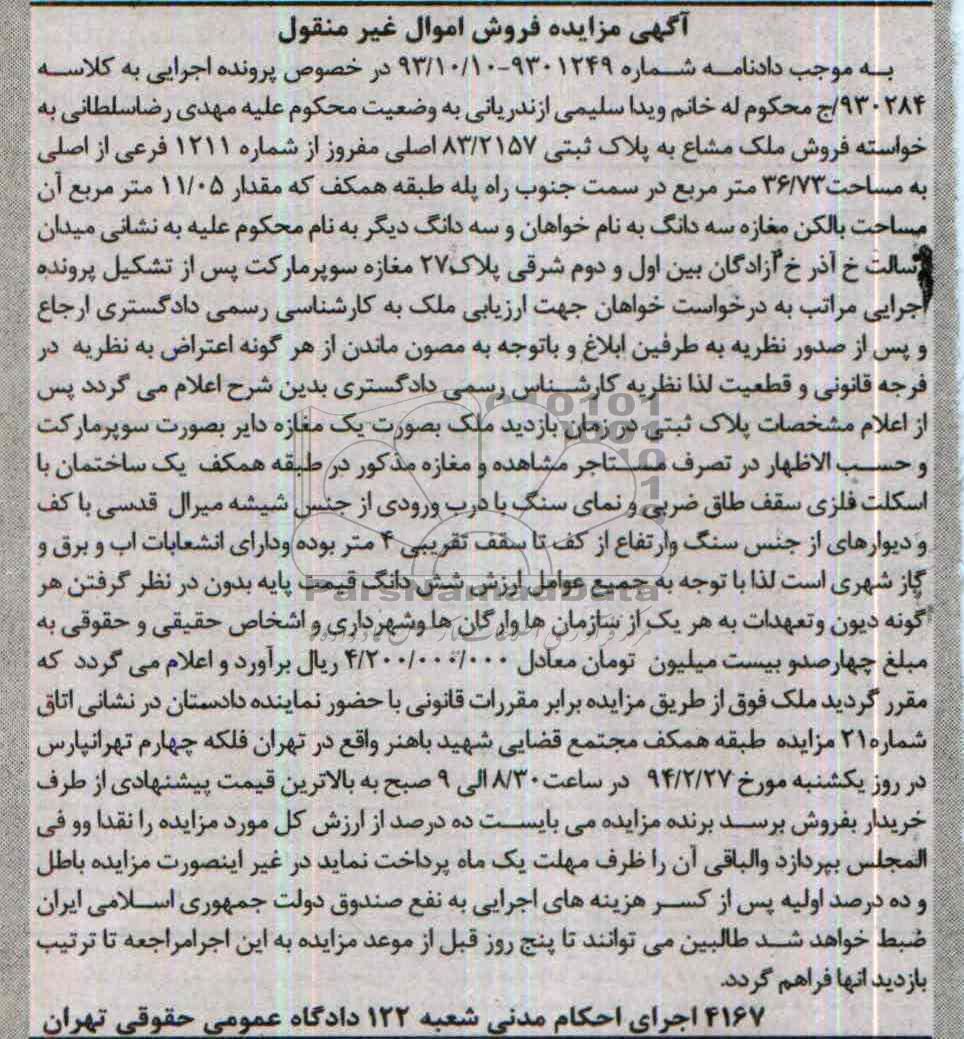 آگهی مزایده فروش اموال غیر منقول
به موجب دادنامه شماره ۹۳۰۱۲۴۹-۹۳/۱۰/۱۰ در خصوص پرونده اجرایی به کلاسه
۹۳۰۲۸۴/ج محکوم له خانم ویدا سلیمی ازندریانی به وضعیت محکوم علیه مهدی رضاسلطانی به
خواسته فروش ملک مشاع به پلاک ثبتی ۸۳/۲۱۵۷ اصلی مفروز از شماره ۱۲۱۱ فرعی از اصلی
به مساحت۳۶/۷۳ متر مربع در سمت جنوب راه پله طبقه همکف که مقدار ۱۱/۰۵ متر مربع آن
مساحت بالکن مغازه سه دانگ به نام خواهان و سه دانگ دیگر به نام محکوم علیه به نشانی میدان
رسالت خ آذر خ آزادگان بین اول و دوم شرقی پلاک۲۷ مغازه سوپرمارکت پس از تشکیل پرونده
اجرایی مراتب به درخواست خواهان جهت ارزیابی ملک به کارشناسی رسمی دادگستری ارجاع
و پس از صدور نظریه به طرفین ابلاغ و باتوجه به مصون ماندن از هر گونه اعتراض به نظریه در
فرجه قانونی و قطعیت لذا نظریه کارشناس رسمی دادگستری بدین شرح اعلام می گردد پس
از اعلام مشخصات پلاک ثبتی در زمان بازدید ملک بصورت یک مغازه دایر بصورت سوپرمارکت
و حسب الاظهار در تصرف مستاجر مشاهده و مغازه مذکور در طبقه همکف یک ساختمان با
اسکلت فلزی سقف طاق ضربی و نمای سنگ با درب ورودی از جنس شیشه میرال قدسی با کف
و دیوارهای از جنس سنگ وارتفاع از کف تا سقف تقریبی ۴ متر بوده ودارای انشعابات اب و برق و
گاز شهری است لذا با توجه به جمیع عوامل ارزش شش دانگ قیمت پایه بدون در نظر گرفتن هر
گونه دیون وتعهدات به هر یک از سازمان ها وارگان ها وشهرداری و اشخاص حقیقی و حقوقی به
مبلغ چهارصدو بیست میلیون تومان معادل ۴/۲۰۰/۰۰۰/۰۰۰ ریال برآورد و اعلام می گردد که
مقرر گردید ملک فوق از طریق مزایده برابر مقررات قانونی با حضور نماینده دادستان در نشانی اتاق
شماره۲۱ مزایده طبقه همکف مجتمع قضایی شهید باهنر واقع در تهران فلکه چهارم تهرانپارس
در روز یکشنبه مورخ ۹۴/۲/۲۷ در ساعت۸/۳۰ الی ۹ صبح به بالاترین قیمت پیشنهادی از طرف
خریدار بفروش برسد برنده مزایده می بایست ده درصد از ارزش کل مورد مزایده را نقدا وو فی
المجلس بپردازد والباقی آن را ظرف مهلت یک ماه پرداخت نماید در غیر اینصورت مزایده باطل
و ده درصد اولیه پس از کسر هزینه های اجرایی به نفع صندوق دولت جمهوری اسلامی ایران
ضبط خواهد شد طالبین می توانند تا پنج روز قبل از موعد مزایده به این اجرامراجعه تا ترتیب
بازدید انها فراهم گردد.
۴۱۶۷ اجرای احکام مدنی شعبه ۱۲۲ دادگاه عمومی حقوقی تهران
ParsNamadData